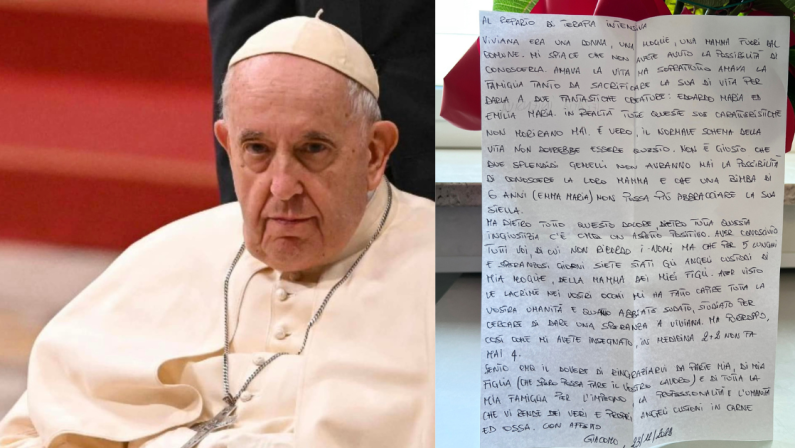 AL REPARTO DI TERAPIA INTENSIVA
VIVIANA ERA UNA DONNA, UNA MOGLIE, UNA MAMMA FUORI DAL
COMUNE. MI SPIACE CHE NON AVETE AVUTO LA POSSIBILITÀ DI
CONOSCERLA. AMAVA LA VITA MA SOPRATTUTTO AMAVA LA
FAMIGLIA TANTO DA SACRIFICARE LA SUA DI VITA PER
DARLA A DUE FANTASTICHE CREATURE: EDOARDO MARIA ED
EMILIA MARIA. IN REALTÀ TUTTE QUESTE SUE CARATTERISTICHE
NON MORIRANNO MAI. È VERO, IL NORMALE SCHEMA DELLA
VITA NON DOVREBBE ESSERE QUESTO. NON È GIUSTO CHE
DUE SPLENDIDI GEMELLI NON AVRANNO MAI LA POSSIBILITÀ
DI CONOSCERE LA LORO MAMMA E CHE UNA BIMBA DI
6 ANNI (EMMA MARIA) NON POSSA PIÙ ABBRACCIARE LA SUA
STELLA.
MA DIETRO TUTTO QUESTO DOLORE DIETRO TUTTA QUESTA
INGIUSTIZIA C'È UN ASPETTO POSITIVO. AVER CONOSCIUTO
TUTTI VOI, DI CUI NON RICORDO I NOMI MA CHE PER 5 LUNGHI
E SPERANZOSI GIORNI SIETE STATI GLI ANGELI CUSTODI DI
MIA MOGLIE, DELLA MAMMA DEI MIEI FIGLI. AVER VISTO
LE LACRIME NEI VOSTRI OCCHI MI HA FATTO CAPIRE TUTTA LA
VOSTRA UMANITÀ E QUANTO ABBIATE SUDATO, STUDIATO PER
CERCARE DI DARE UNA SPERANZA A VIVIANA. MA PURTROPPO,
COSÌ COME MI AVETE INSEGNATO, IN MEDICINA 2+2 NON FA
MAI 4.
SENTO IL DOVERE DI RINGRAZIARVI DA PARTE MIA, DI MIA
FIGLIA (CHE SPERO POSSA FARE IL VOSTRO LAVORO) E DI TUTTA LA
MIA FAMIGLIA PER L'IMPEGNO, LA PROFESSIONALITÀ E L'UMANITÀ
CHE VI RENDE DEI VERI E PROPRI ANGELI CUSTODI IN CARNE
ED OSSA. CON AFFETTO
GIACOMO